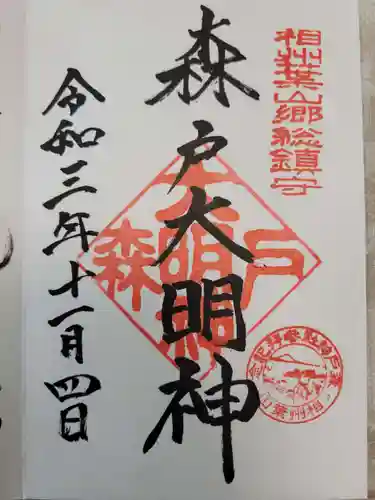 相州葉山郷総鎮守
森戸大明神
令和三年十一月四日
森戸大明神